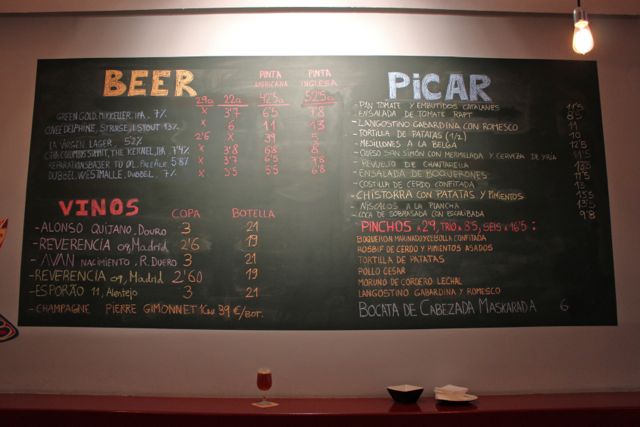 BEER
PINTA AMERICANA
PINTA INGLESA
29a 22a 42'5a 52'5a
GREEN GOLD, MIKKELLER, IPA. 7% X 3'7 6'5 7'8
CUVÉE DELPHINE, STRUISE, I.STOUT 13% X 6 11 13
LA VIRGEN LAGER, 5,2% 2'6 X 39 6
THE KERNEL, IPA, X 3'8 6'8 8
PALE ALE 5'8% X 3'7 6'5 7'8
DUBBEL, WESTMALLE, DUBBEL, 7% X 3'5 5'5
VINOS COPA BOTELLA
- ALONSO QUIJANO, DOURO 3 21
- REVERENCIA 09, Madrid 2'6 19
- AVAN NACIMIENTO, R. DUERO 3 21
- REVERENCIA 09, Madrid 2'60 19
- ESPORÃO 11, Alentejo 3 21
- CHAMPAGNE PIERRE GIMONNET 39 €/BOT.
PiCAR
- PAN TOMATE Y EMBUTIDOS CATALANES 11'5
- ENSALADA DE TOMATE RAFF 8'5
- LANGOSTINO GABARDINA CON ROMESCO 11
- TORTILLA DE PATATAS (1/2) 10
- MEJILLONES A LA BELGA 12'5
- QUESO SAN SIMÓN CON MERMELADA Y CERVEZA DE 11'5
- REVUELTO DE CHANTARELLA
- ENSALADA DE BOQUERONES
- COSTILLA DE CERDO CONFITADA
- CHISTORRA CON PATATAS Y PIMIENTOS
- NÍSCALOS A LA PLANCHA 13'5
- COCA DE SOBRASADA CON ESCALIBADA 9'8
PINCHOS A 2'9, TRIO A 8'5, SEIS A 16'5:
BOQUERON MARINADO Y CEBOLLA CONFITADA
ROSBIF DE CERDO Y PIMIENTOS ASADOS
TORTILLA DE PATATAS
POLLO CESAR
MORUNO DE CORDERO LECHAL
LANGOSTINO GABARDINA Y ROMESCO
BOCATA DE CABEZADA MASKARADA 6